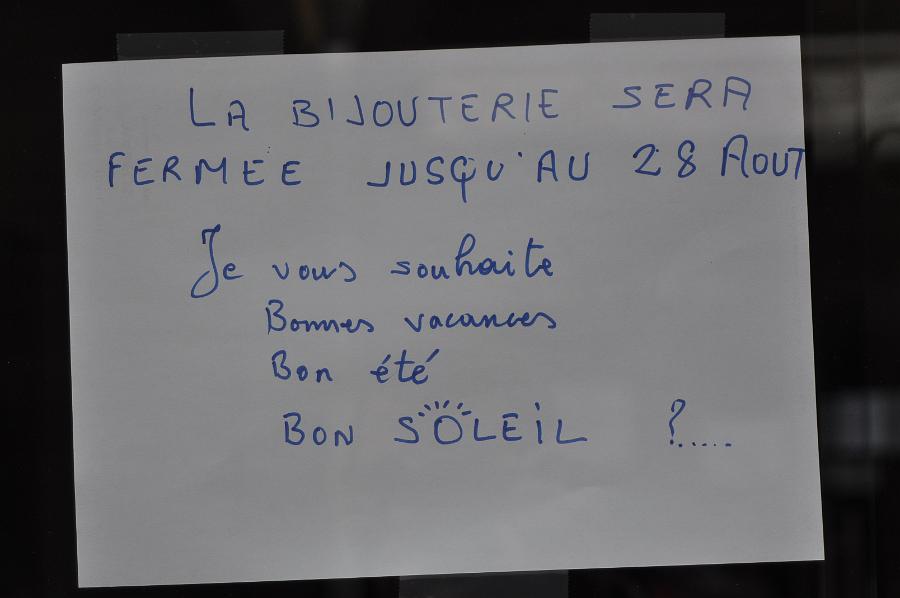 LA BIJOUTERIE SERA
FERMEE JUSQU'AU 28 AOUT
Je vous souhaite
Bonnes vacances
Bon été
BON SOLEIL ?.....